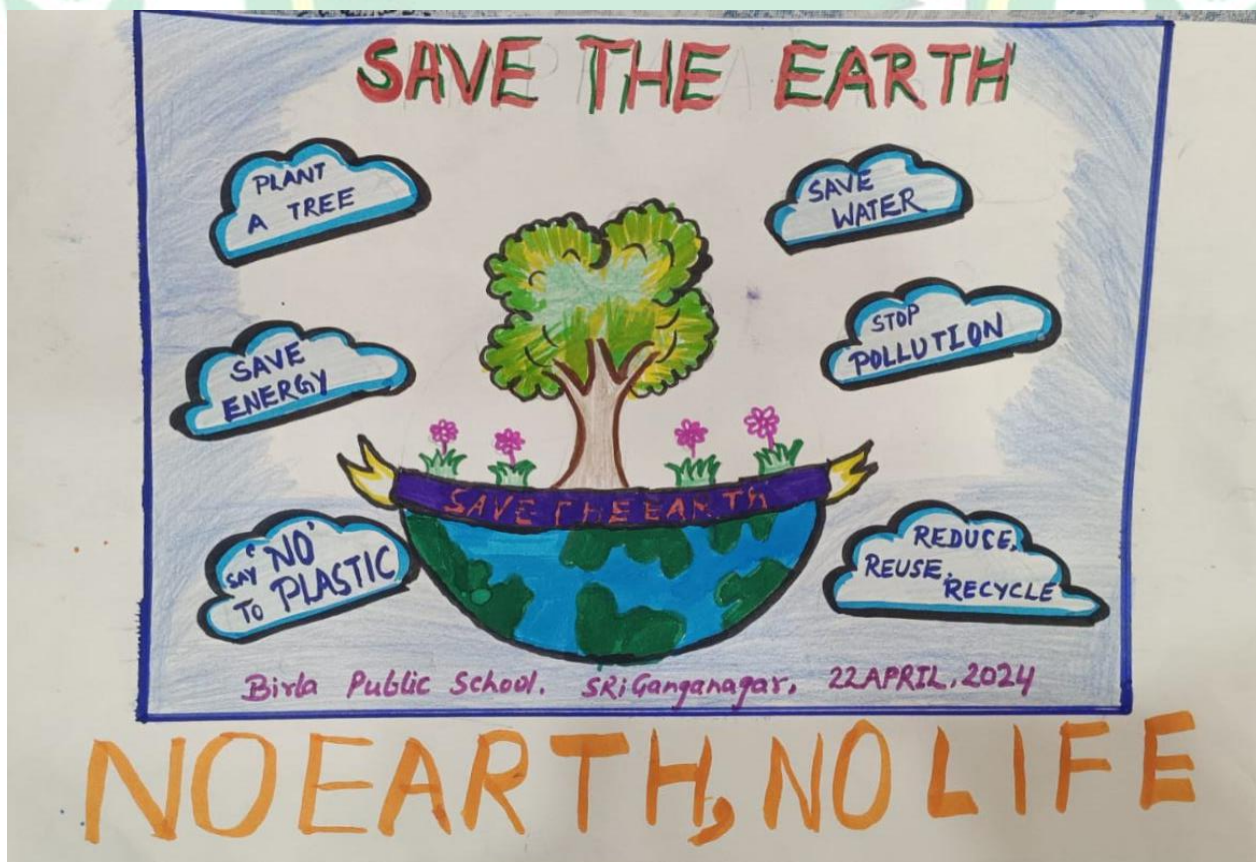 SAVE THE EARTH
PLANT
A TREE
SAVE
WATER
SAVE
ENERGY
STOP
POLLUTION
SAVE THE EARTH
SAY 'NO'
TO PLASTIC
REDUCE,
REUSE,
RECYCLE
Birla Public School. SRiGanganagar, 22 APRIL, 2024
NO EARTH, NO LIFE